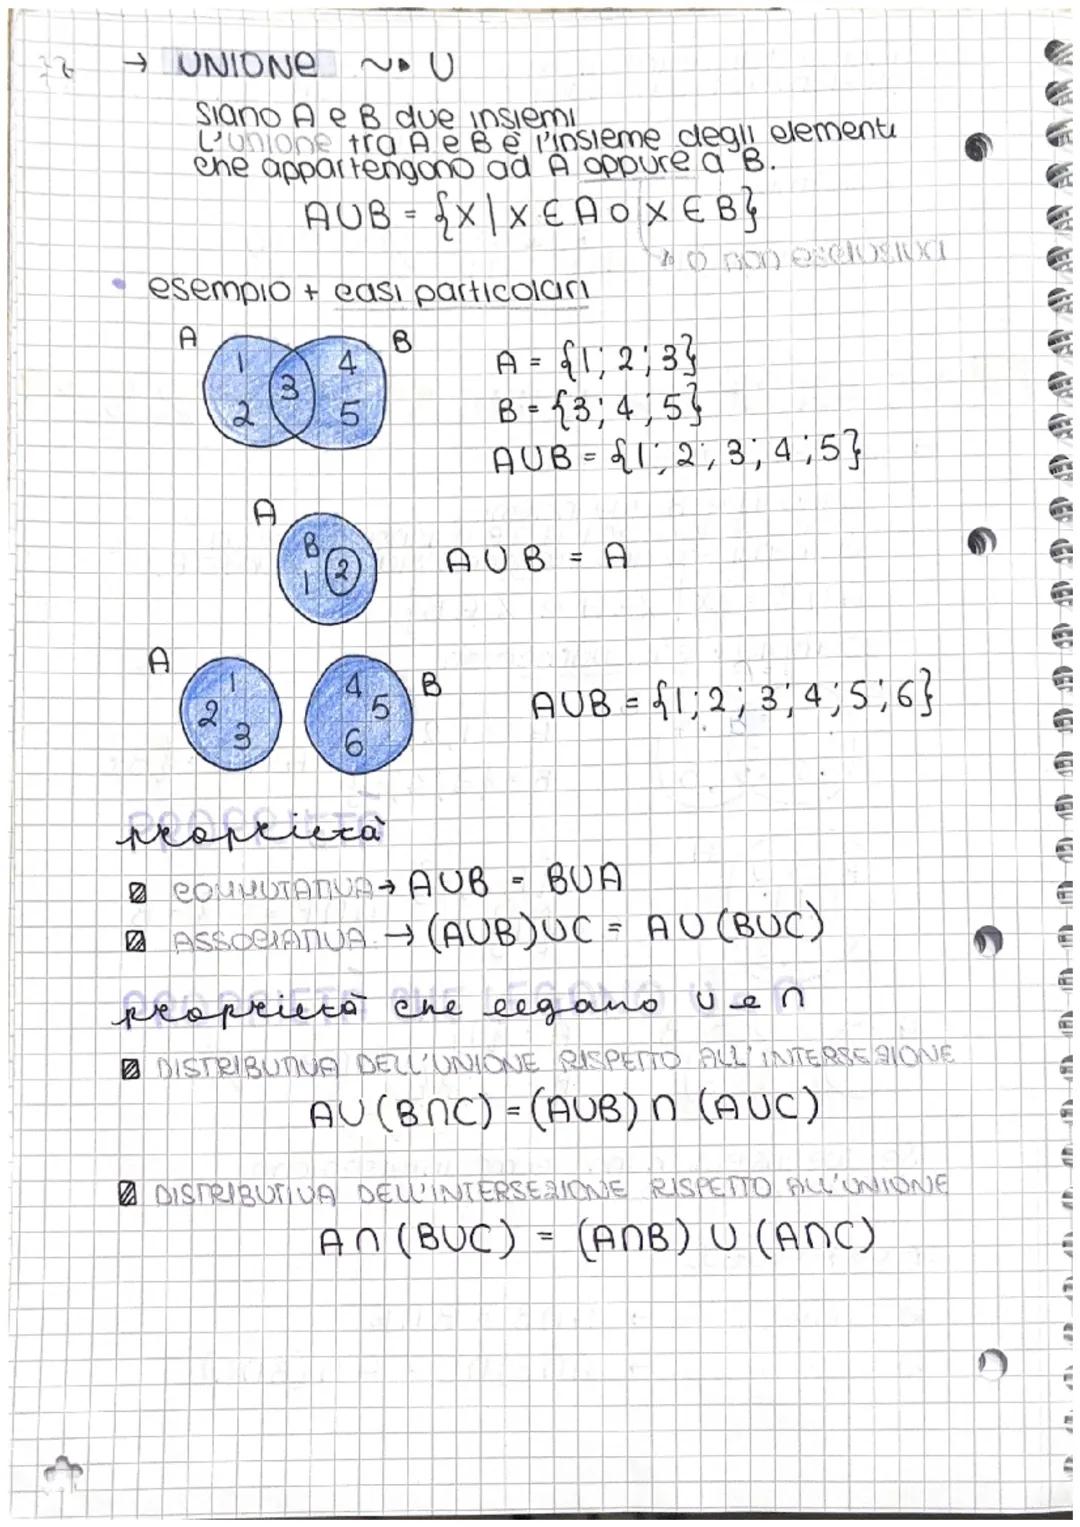 → UNIONE ~▸ U
Siano A e B due insiemi
L'unione tra A e B è l'insieme degli elementi
che appartengono ad A oppure a B.
A∪B = {x | x ∈ A o x ∈ B}
↳ o non esclusiva
• esempio + casi particolari
A B
1 4
3
2 5
A = {1; 2; 3}
B = {3; 4; 5}
A∪B = {1; 2; 3; 4; 5}
A
B
1 2
A ∪ B = A
A B
1 4
2 5
3 6
A∪B = {1; 2; 3; 4; 5; 6}
proprietà
COMMUTATIVA → A∪B = B∪A
ASSOCIATIVA → (A∪B)∪C = A∪(B∪C)
proprietà che legano ∪ e ∩
DISTRIBUTIVA DELL'UNIONE RISPETTO ALL'INTERSEZIONE
A∪(B∩C) = (A∪B) ∩ (A∪C)
DISTRIBUTIVA DELL'INTERSEZIONE RISPETTO ALL'UNIONE
A∩(B∪C) = (A∩B) ∪ (A∩C)